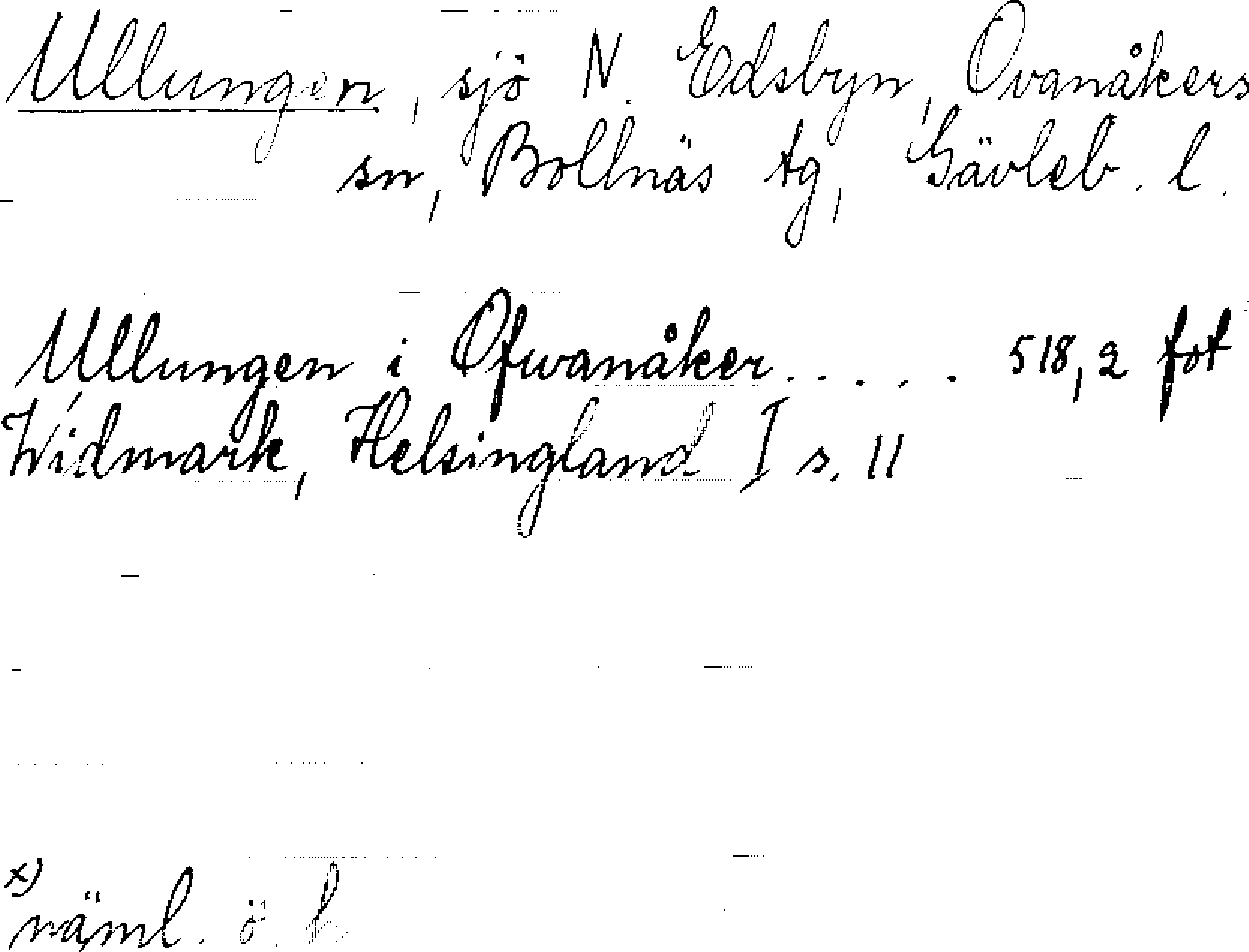 Ullungen, sjö N. Edsbyn, Ovanåkers
sn, Bollnäs tg, Gävleb. l.
Ullungen i Ofwanåker..... 518,2 fot
Widmark, Helsingland I s. 11
x)
näml. ö. h